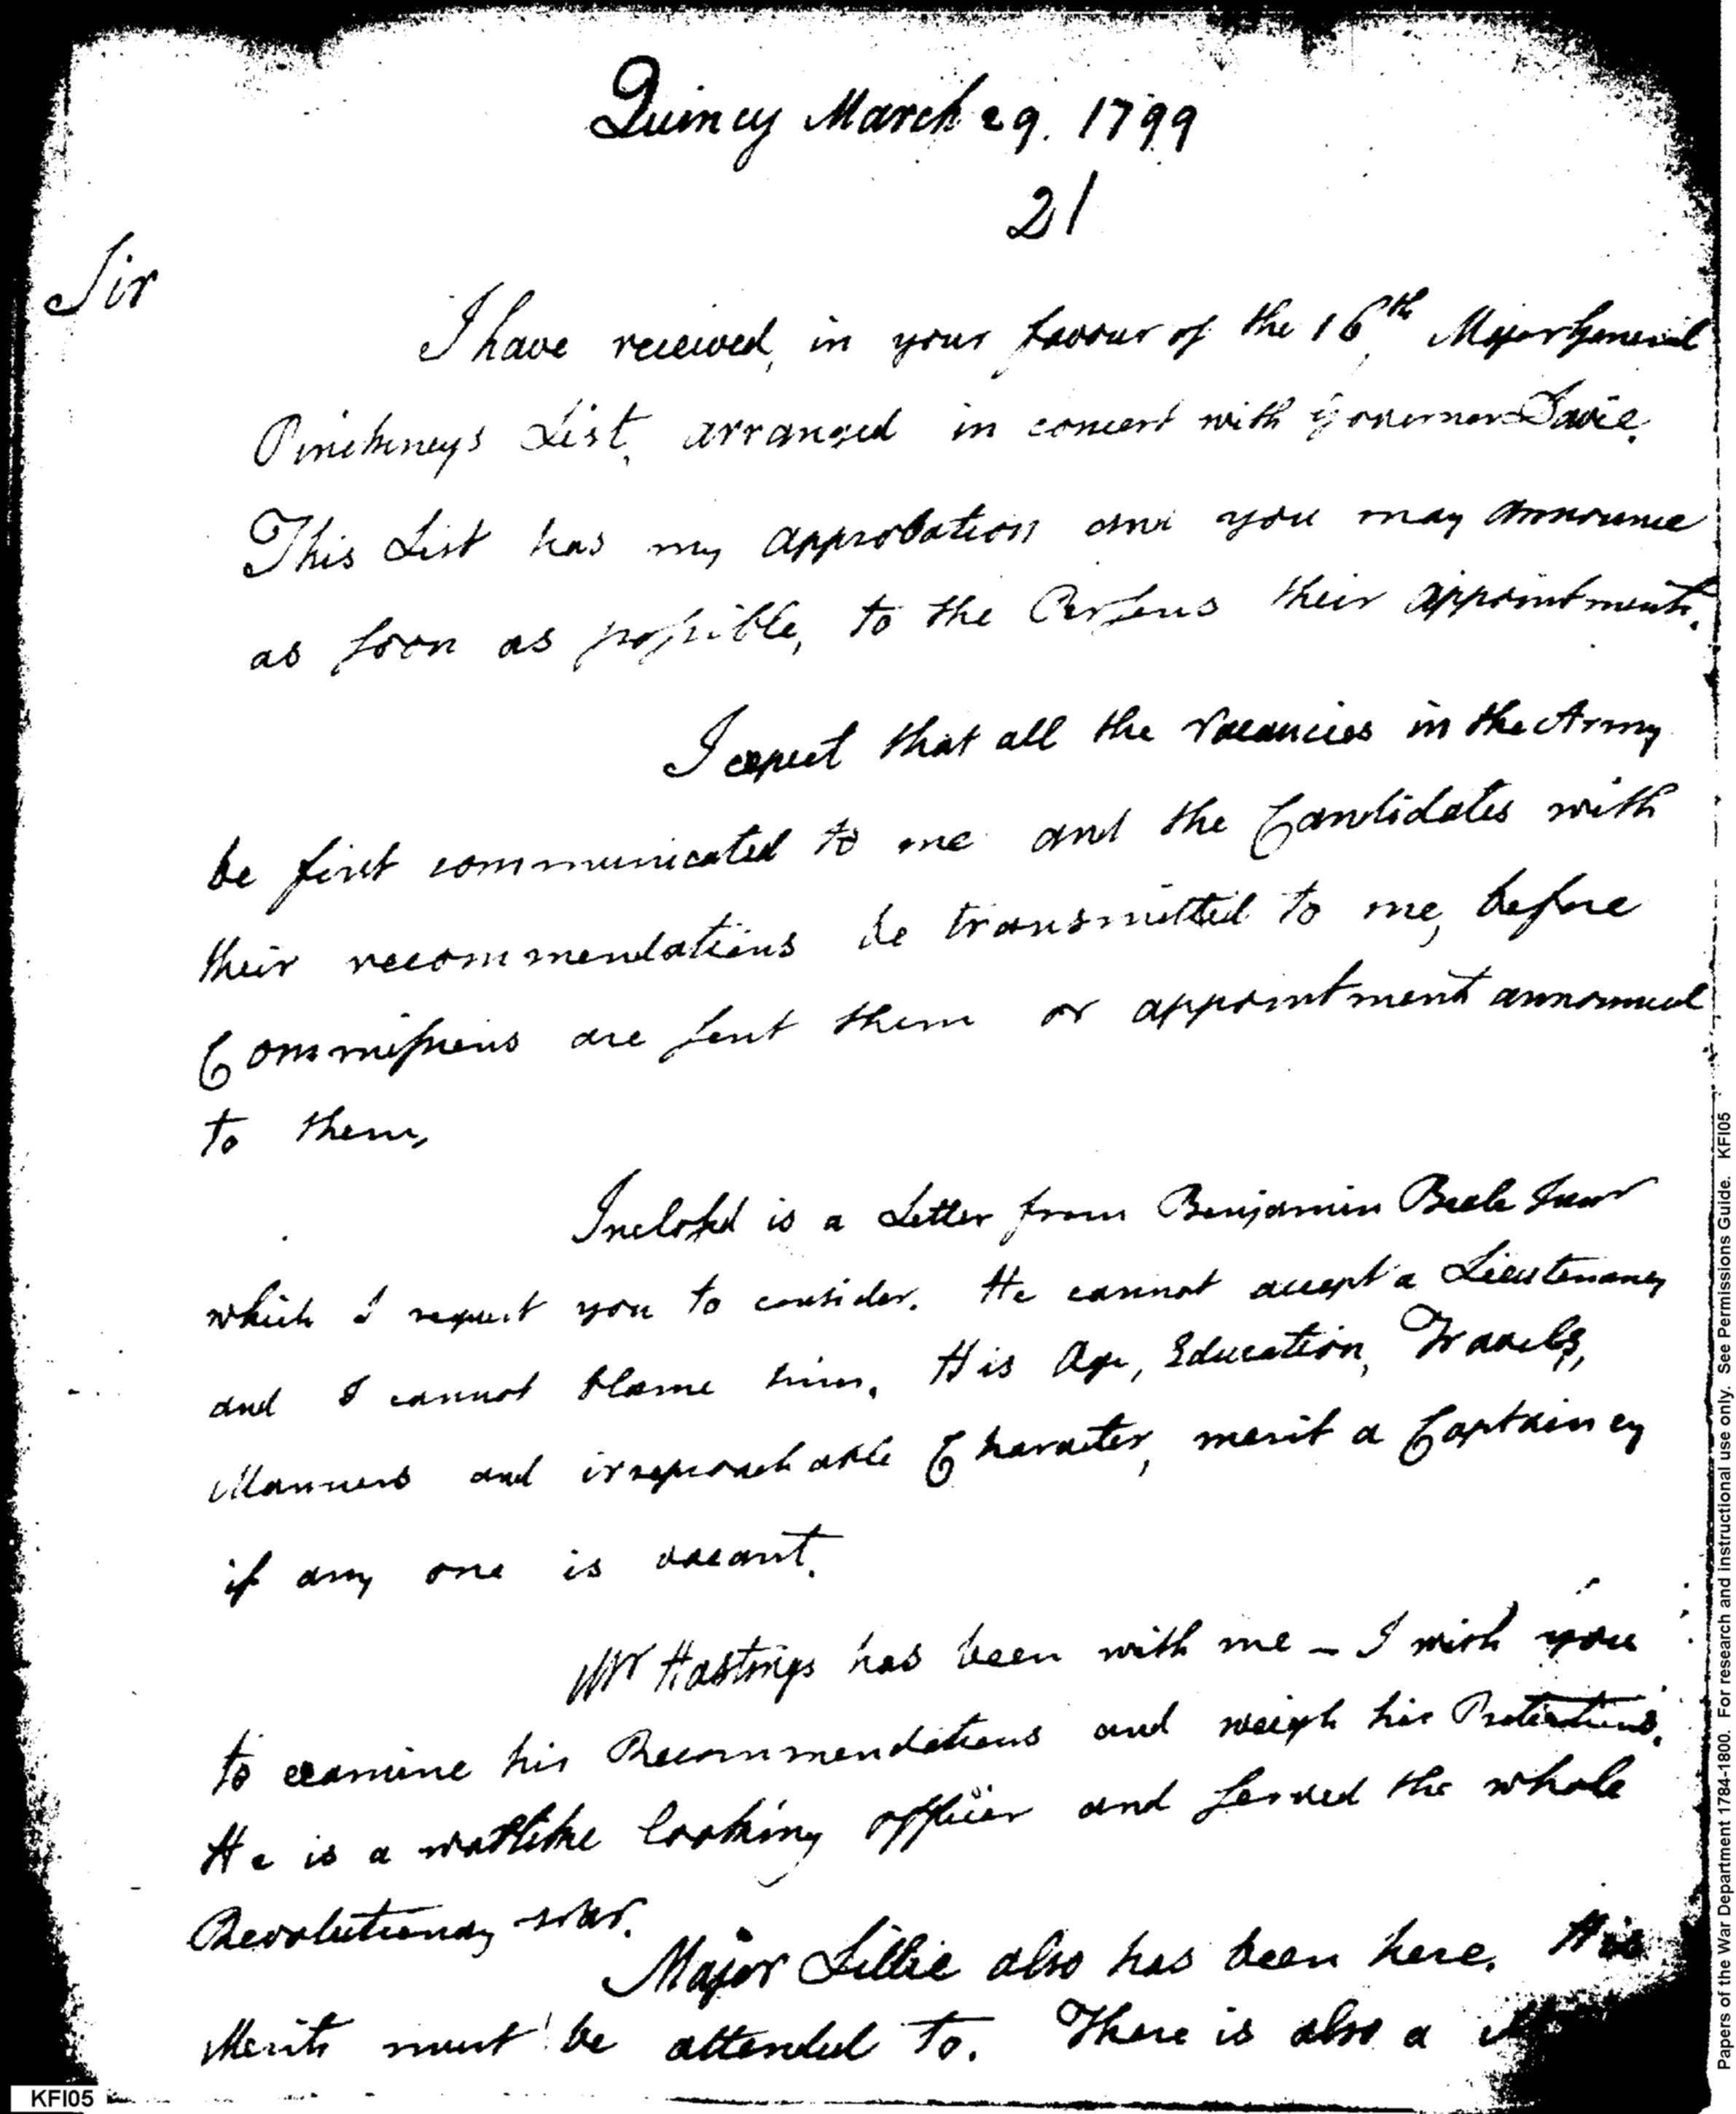 Quincy March 29. 1799
21
Sir
I have received, in your favour of the 16th, Major General
Pinckneys List, arranged in concert with Governor Davie.
This List has my approbation and you may announce
as soon as possible, to the Persons their appointments.
I expect that all the Vacancies in the Army
be first communicated to me and the Candidates with
their recommendations be transmitted to me, before
Commissions are sent them or appointment announced
to them,
Inclosed is a Letter from Benjamin Beale Junr
which I request you to consider. He cannot accept a Lieutenancy
and I cannot blame him. His Age, Education, Travels,
Manners and irreproachable Character, merit a Captaincy
if any one is vacant.
Mr Hastings has been with me – I wish you
to examine his Recommendations and weigh his Pretentions.
He is a warlike looking officer and served the whole
Revolutionary War.
Major Lillie also has been here. His
Merits must be attended to. There is also a
KFI05
Papers of the War Department 1784-1800. For research and instructional use only. See Permissions Guide. KFI05